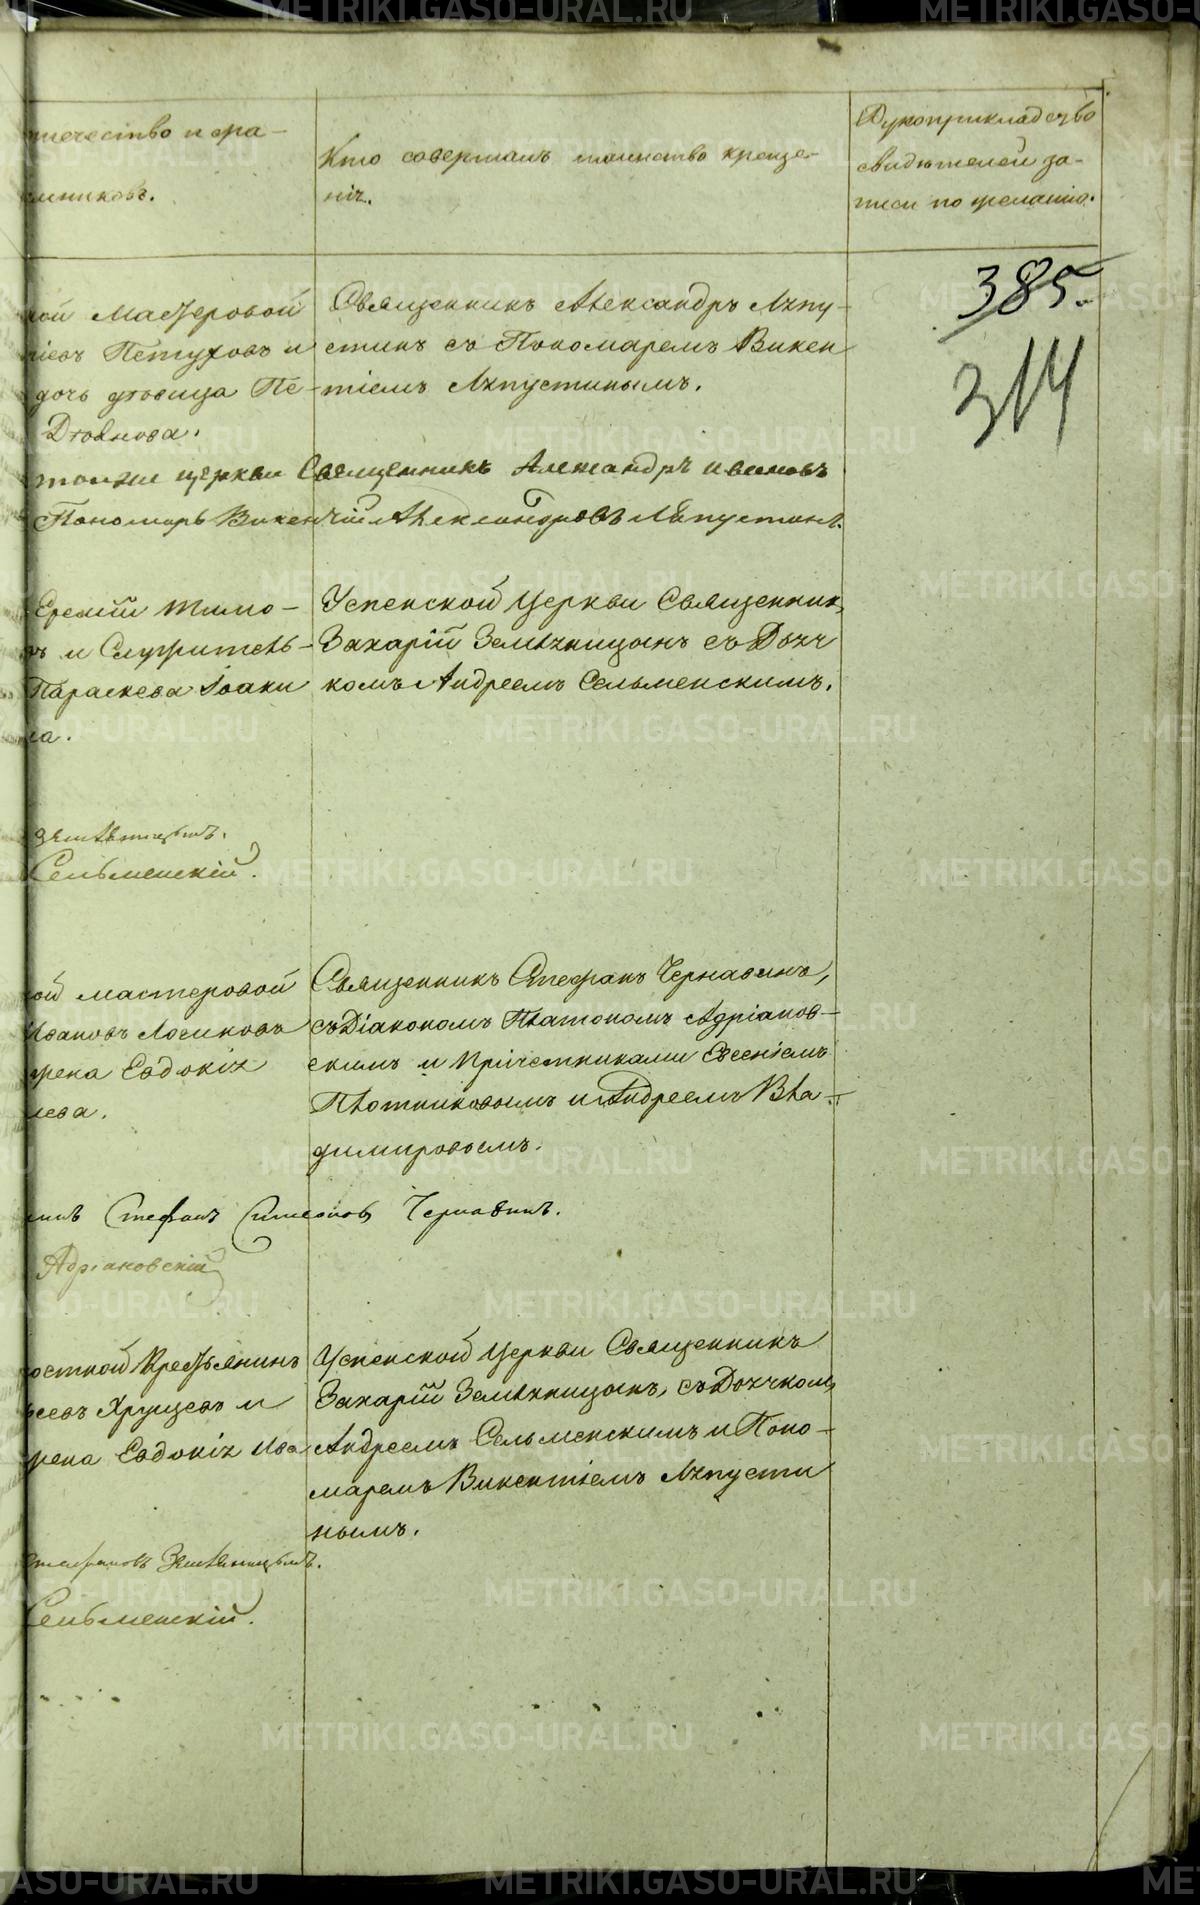 течество и фа-
мниковъ.
Кто совершалъ таинство креще-
нія.
Рукоприкладство
свидѣтелей за-
писи по желанію.
385.
314
кой Мастеровой
Петуховъ и
дочь дѣвица Пе-
Священникъ Александръ Ляпу-
стинъ съ Пономаремъ Викен
тіемъ Ляпустинымъ.
тойже церкви Священникъ Александръ Ивановъ
Пономарь Викентій Александровъ Ляпустинъ.
Еремій Тимо-
въ и Служитель-
Параскева Іоаки
ва.
Успенской Церкви Священник
Захарій Земляницынъ съ Дьяч
комъ Андреемъ Сельменскимъ.
Земляницынъ.
Сельменскій.
кой мастеровой
Ивановъ Логиновъ
жена Евдокія
лева.
Священникъ Стефанъ Чернавинъ,
съ Діакономъ Платономъ Адріанов-
скимъ и Причетниками Евгеніемъ
Плотниковымъ и Андреемъ Вла-
димировымъ.
никъ Стефанъ Симеоновъ Чернавинъ.
Адріановскій
ростной Крестьянинъ
сеевъ Хрущевъ и
жена Евдокія Ива
Успенской Церкви Священникъ
Захарій Земляницынъ, съ Дьячком
Андреемъ Сельменскимъ и Поно-
маремъ Викентіемъ Ляпусти
нымъ.
Стефановъ Земляницынъ.
Сельменскій.
METRIKI.GASO-URAL.RU